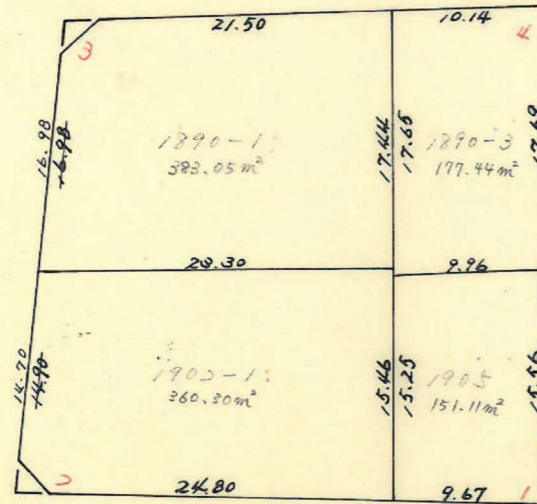 21.50
10.14
3
4
16.98
16.98
1890-1
383.05m²
17.44
17.65
1890-3
177.44m²
17.69
23.30
9.96
14.70
14.90
1902-1
360.30m²
15.46
15.25
1905
151.11m²
15.56
2
24.80
9.67
1